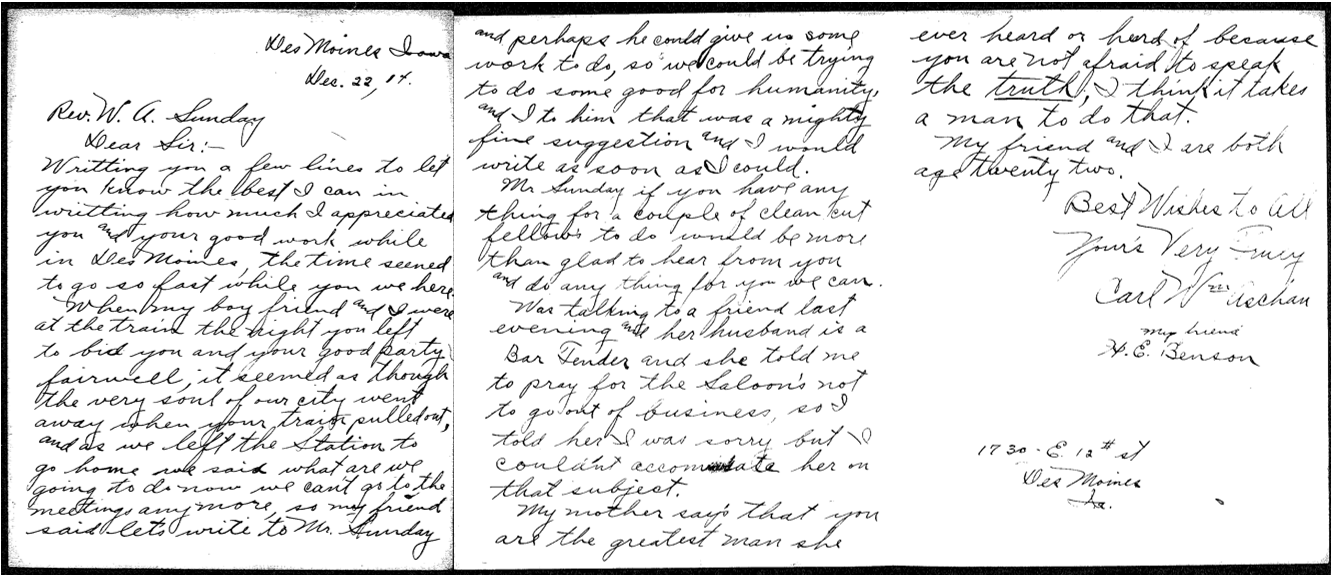 Des Moines Iowa
Dec. 22, 14.
Rev. W. A. Sunday
Dear Sir:-
Writting you a few lines to let
you know the best I can in
writting how much I appreciated
you and your good work while
in Des Moines, the time seened
to go so fast while you we here.
When my boy friend and I were
at the train the night you left
to bid you and your good party
fairwell, it seemed as though
the very soul of our city went
away when your train pulled out,
and as we left the Station to
go home we said what are we
going to do now we can't go to the
meetings any more, so my friend
said lets write to Mr. Sunday
and perhaps he could give us some
work to do, so we could be trying
to do some good for humanity,
and I to him that was a mighty
fine suggestion and I would
write as soon as I could.
Mr Sunday if you have any
thing for a couple of clean cut
fellows to do would be more
than glad to hear from you
and do any thing for you we can.
Was talking to a friend last
evening and her husband is a
Bar Tender and she told me
to pray for the Saloon's not
to go out of business, so I
told her I was sorry but I
couldn't accomodate her on
that subject.
My mother say's that you
are the greatest man she
ever heard or heard of because
you are not afraid to speak
the truth, I think it takes
a man to do that.
My friend and I are both
age twenty two.
Best Wishes to All
Your's Very Truly
Carl Wm Aschan
my friend
H. E. Benson
1730 - E. 12th st
Des Moines
Ia.